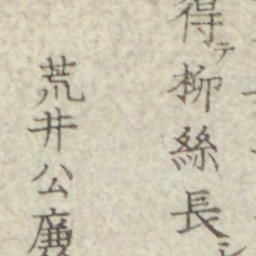 得テ柳絲長シ
荒井公廉